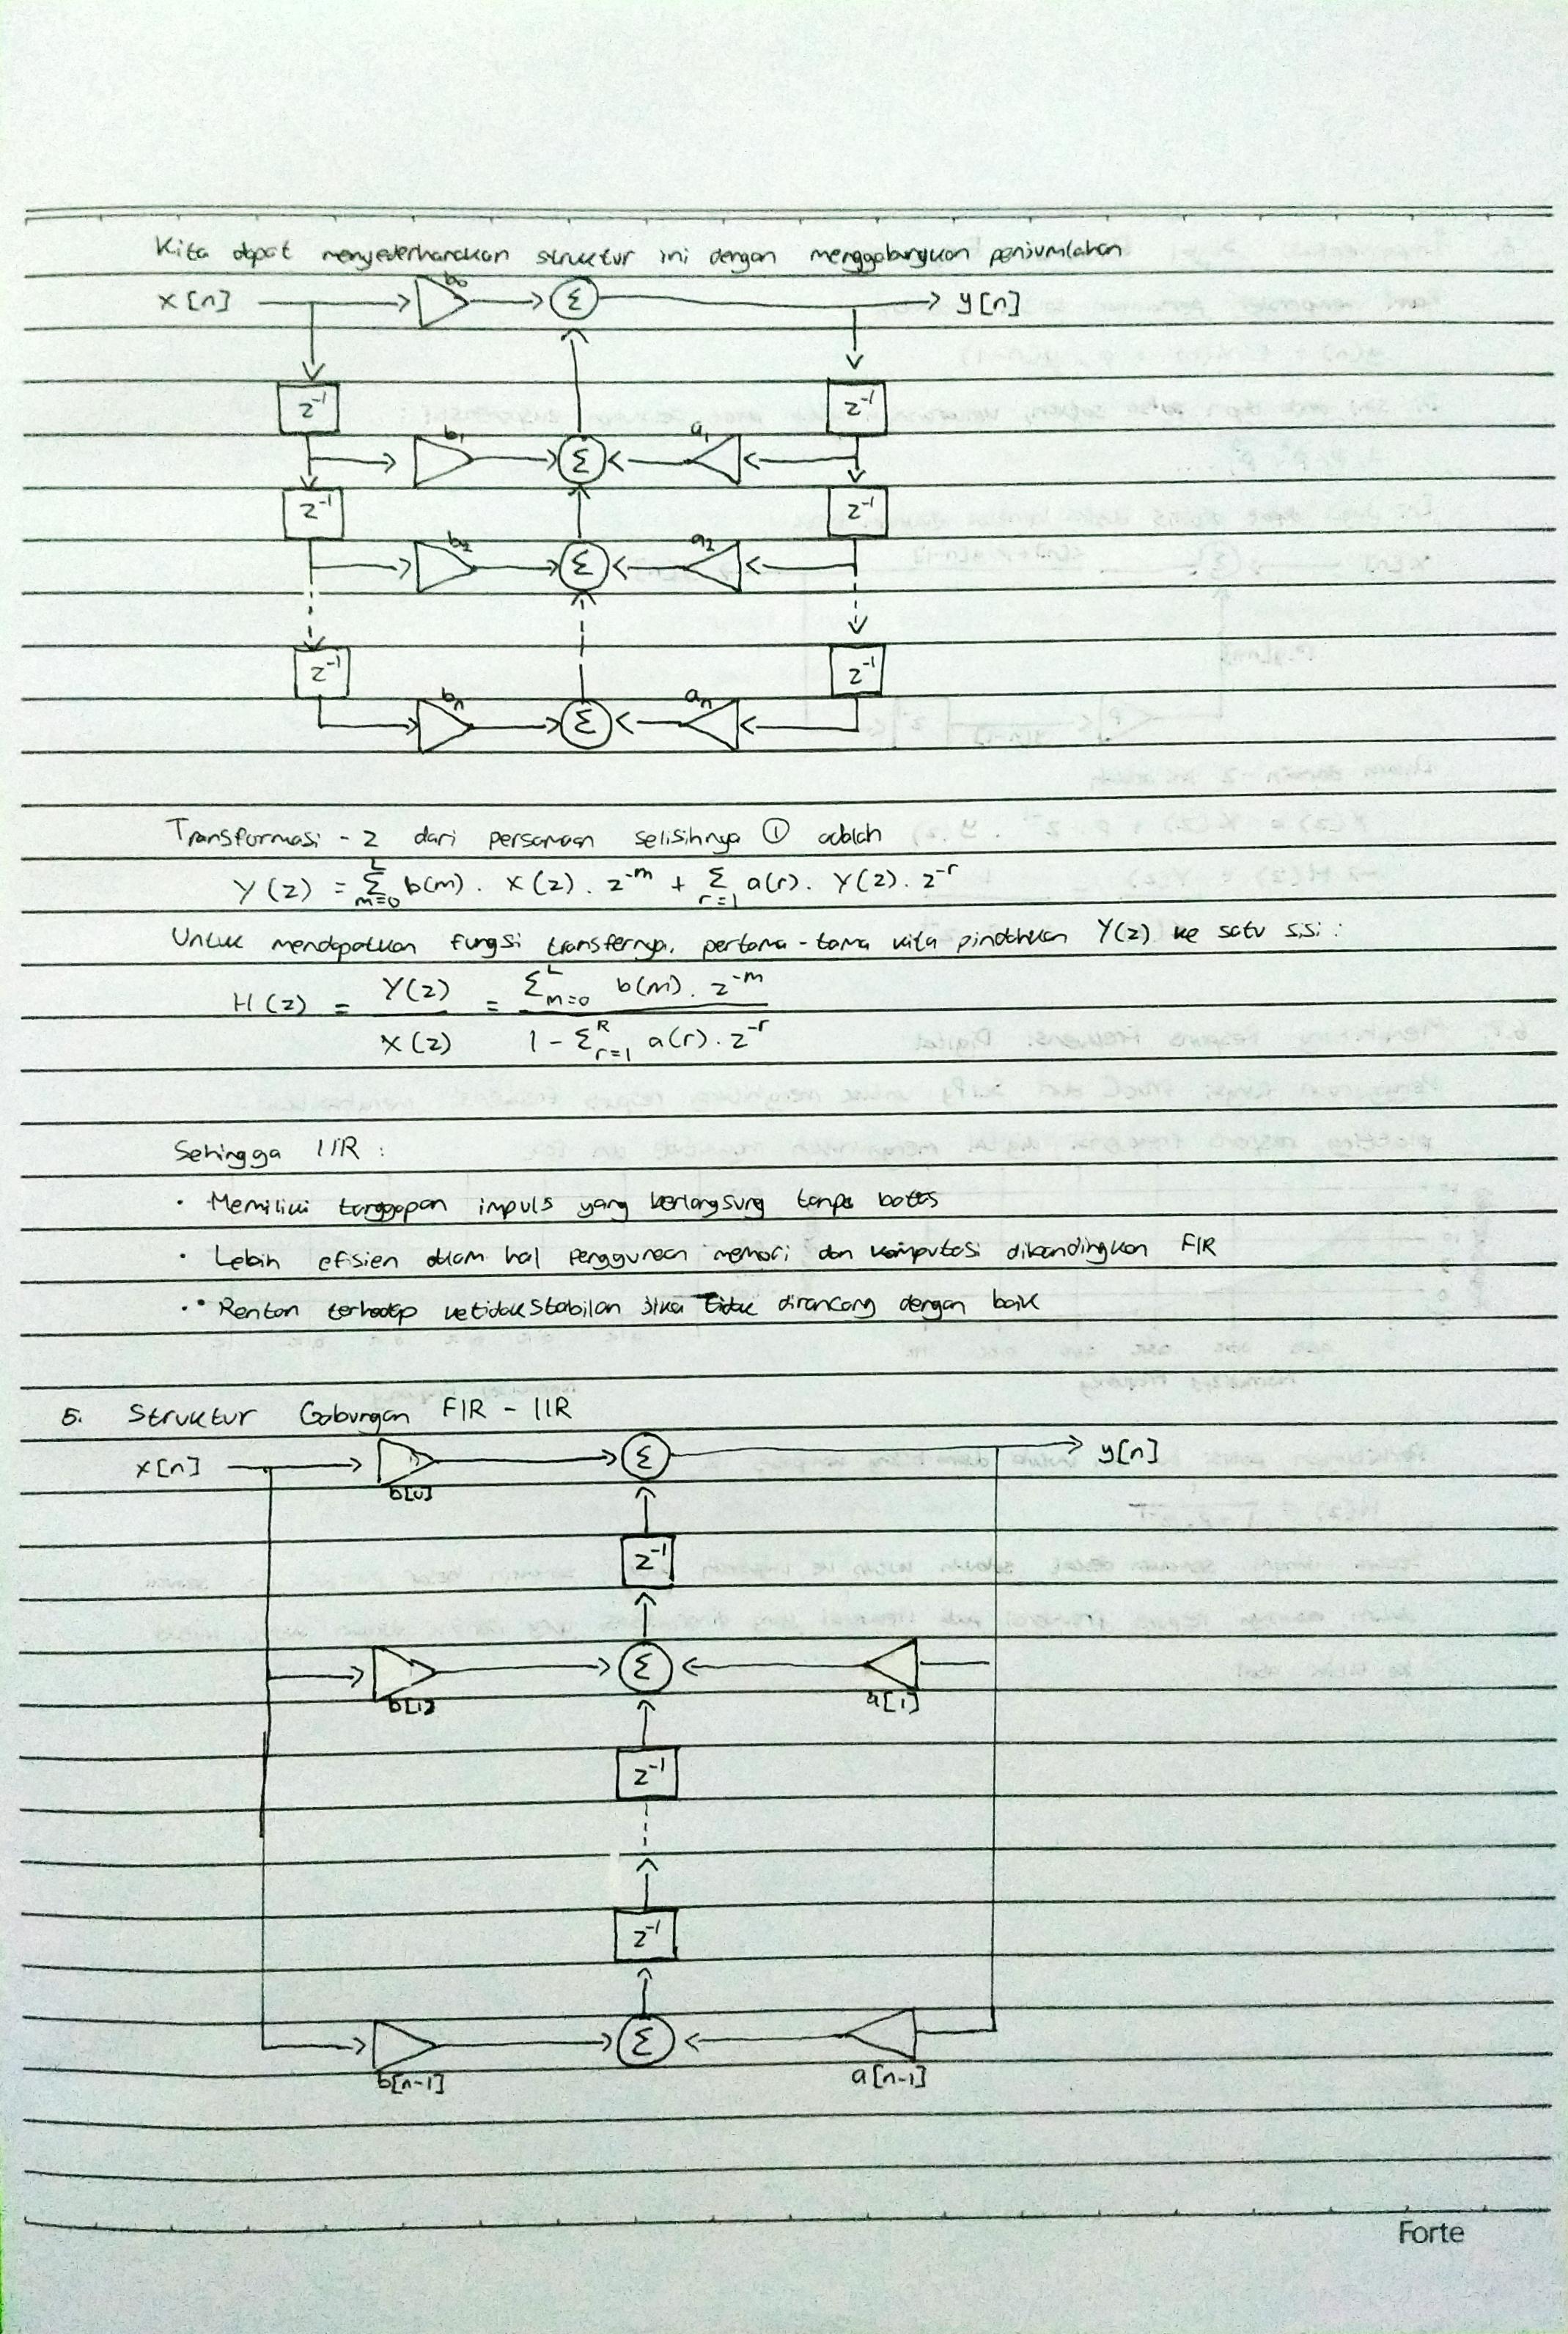 Kita dapat menyederhanakan struktur ini dengan menggabungkan penjumlahan
x[n] b₀ Σ y[n]
z⁻¹ z⁻¹
b₁ Σ a₁
z⁻¹ z⁻¹
b₂ Σ a₂
z⁻¹ z⁻¹
bₙ Σ aₙ
Transformasi - z dari persamaan selisihnya ① adalah
Y(z) = Σ_{m=0}^{L} b(m) . X(z) . z⁻ᵐ + Σ_{r=1} a(r) . Y(z) . z⁻ʳ
Untuk mendapatkan fungsi transfernya, pertama-tama kita pindahkan Y(z) ke satu sisi :
H(z) = Y(z) / X(z) = Σ_{m=0}^{L} b(m) . z⁻ᵐ / 1 - Σ_{r=1}^{R} a(r) . z⁻ʳ
Sehingga IIR :
• Memiliki tanggapan impuls yang berlangsung tanpa batas
• Lebih efisien dalam hal penggunaan memori dan komputasi dibandingkan FIR
• Rentan terhadap ketidakstabilan jika tidak dirancang dengan baik
5. Struktur Gabungan FIR - IIR
x[n] b[0] Σ y[n]
z⁻¹
b[1] Σ a[1]
z⁻¹
z⁻¹
b[n-1] Σ a[n-1]
Forte